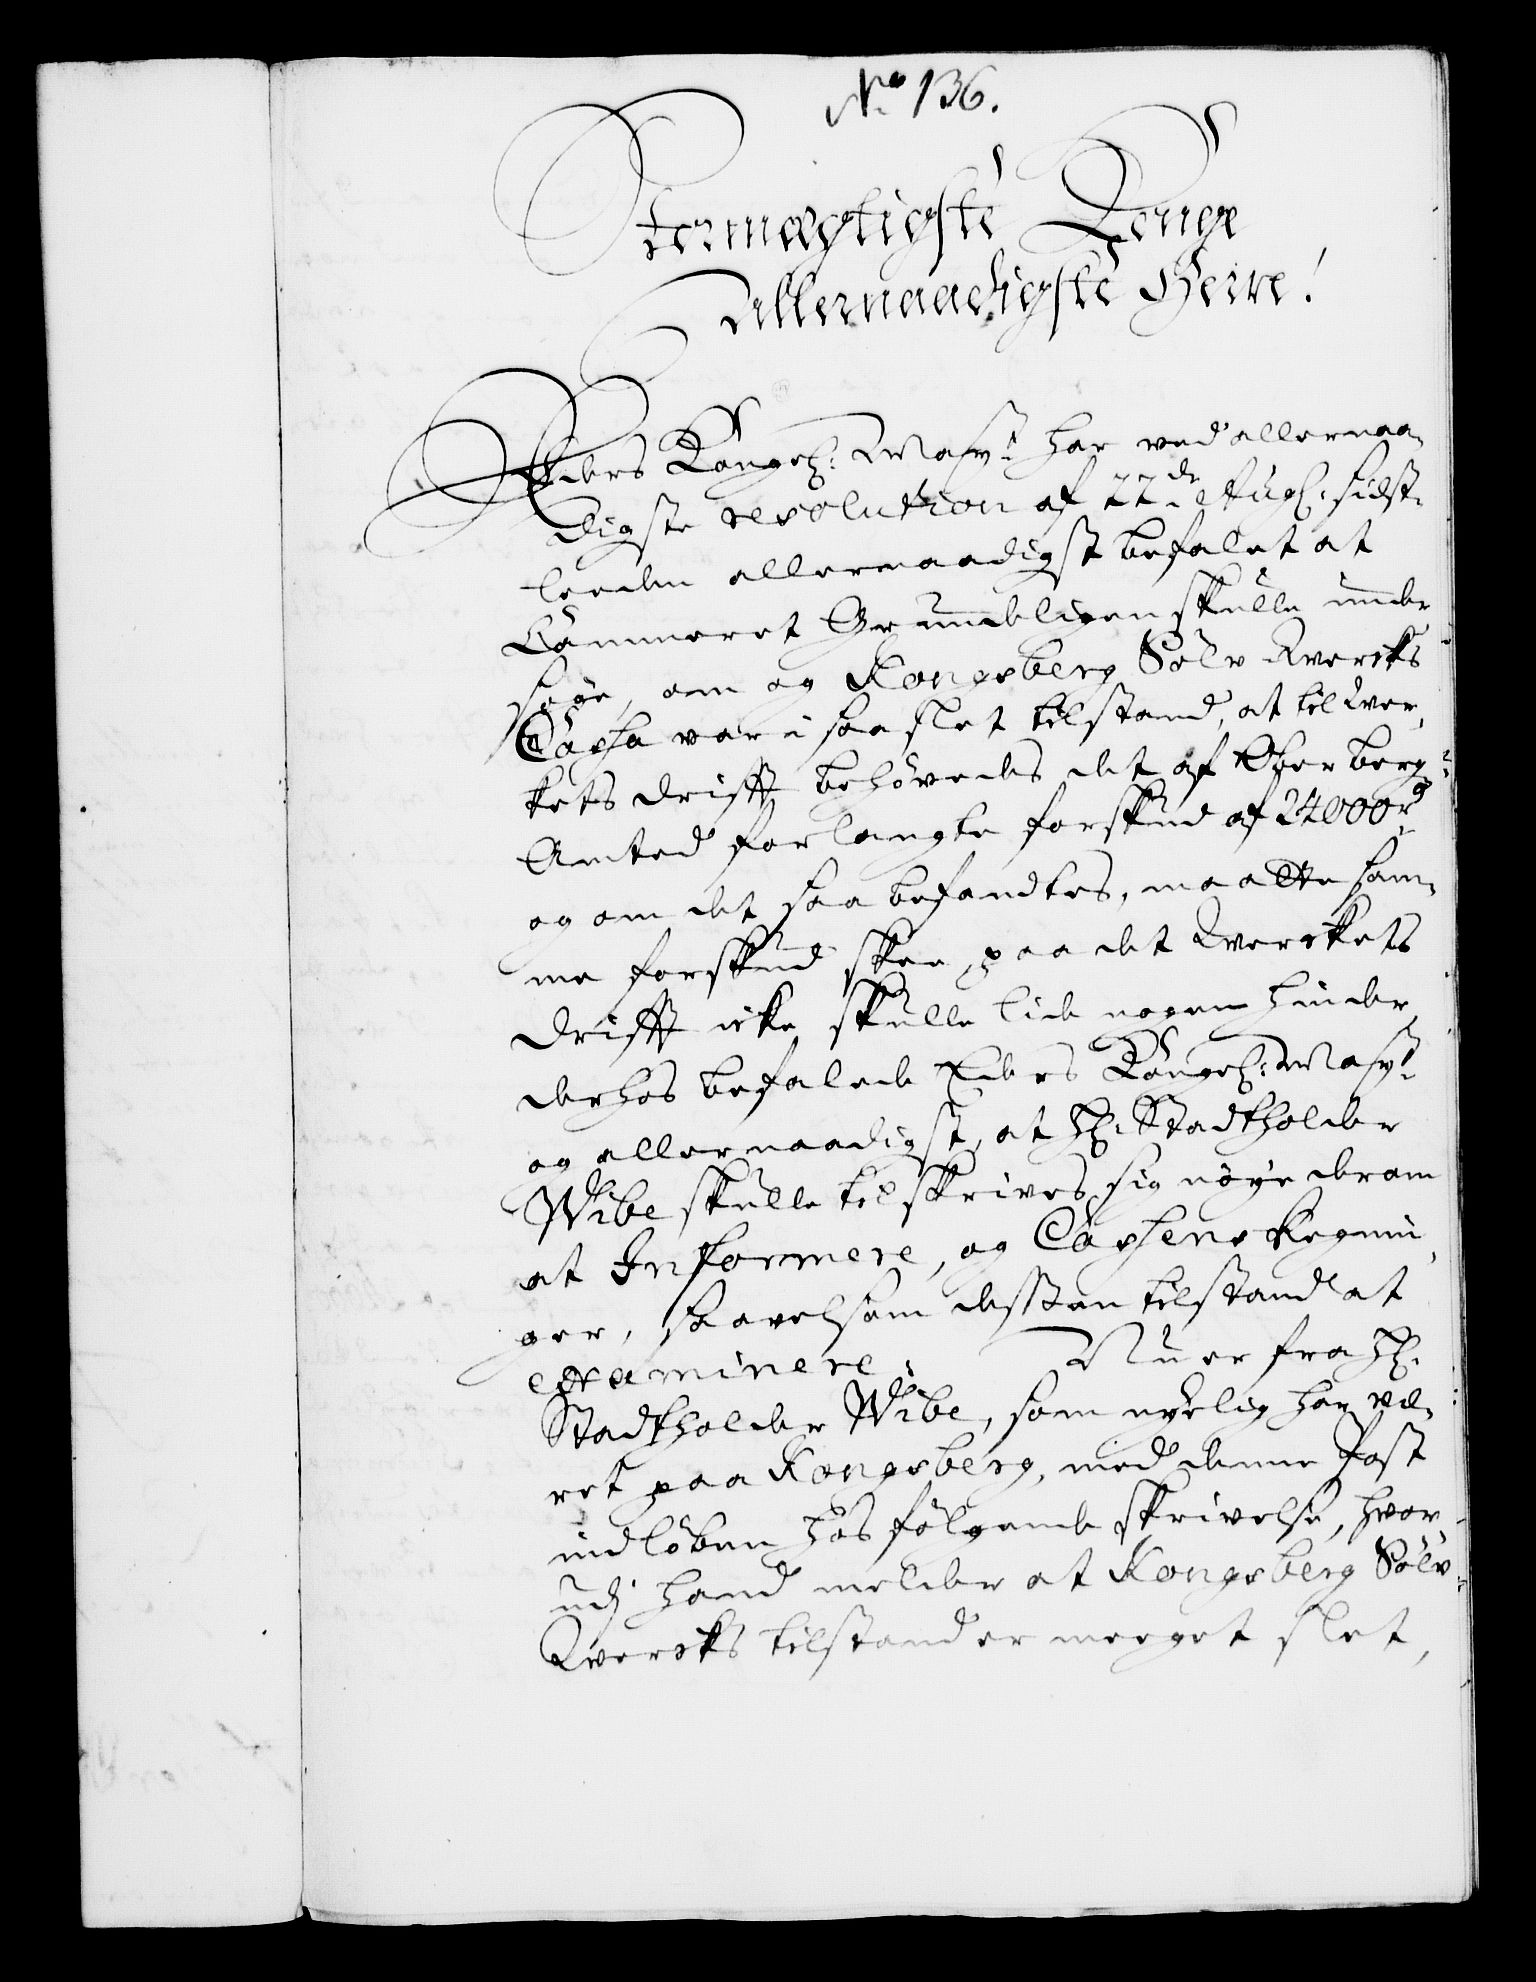 No 136.
Stormægtigste Konge
allernaadigste Herre!
Eders Kongel: May:t har ved allernaa-
digste resolution af 22de Aug: sidst-
leeden allernaadigst befalet at
Cammeret Grundeligen skulle under
søge, om og Kongsberg Sølv Wercks
Cassa var i saa slet tilstand, at til Wer-
kets drifft behøvedes det af Ober berg-
Amted forlangte forskud af 24000 rd
og om det saa befandtes, maatte sam-
me forskud skee, paa det Werckets
drifft icke skulle lide nogen hinder,
derhos befalede Eders Kongel: May:t
og allernaadigst, at H: Stadtholder
Wibe skulle tilskrives, sig nøye derom
at Informere, og Cassens Regnin-
ger, saavelsom dessen tilstand at
examinere. Nu er fra H:
Stadtholder Wibe, som nylig har væ-
ret paa Kongsberg, med denne Post
indløben hosfølgende skrivelse, hvor-
udj hand melder at Kongsberg Sølv-
Wercks tilstand er meeget slet,